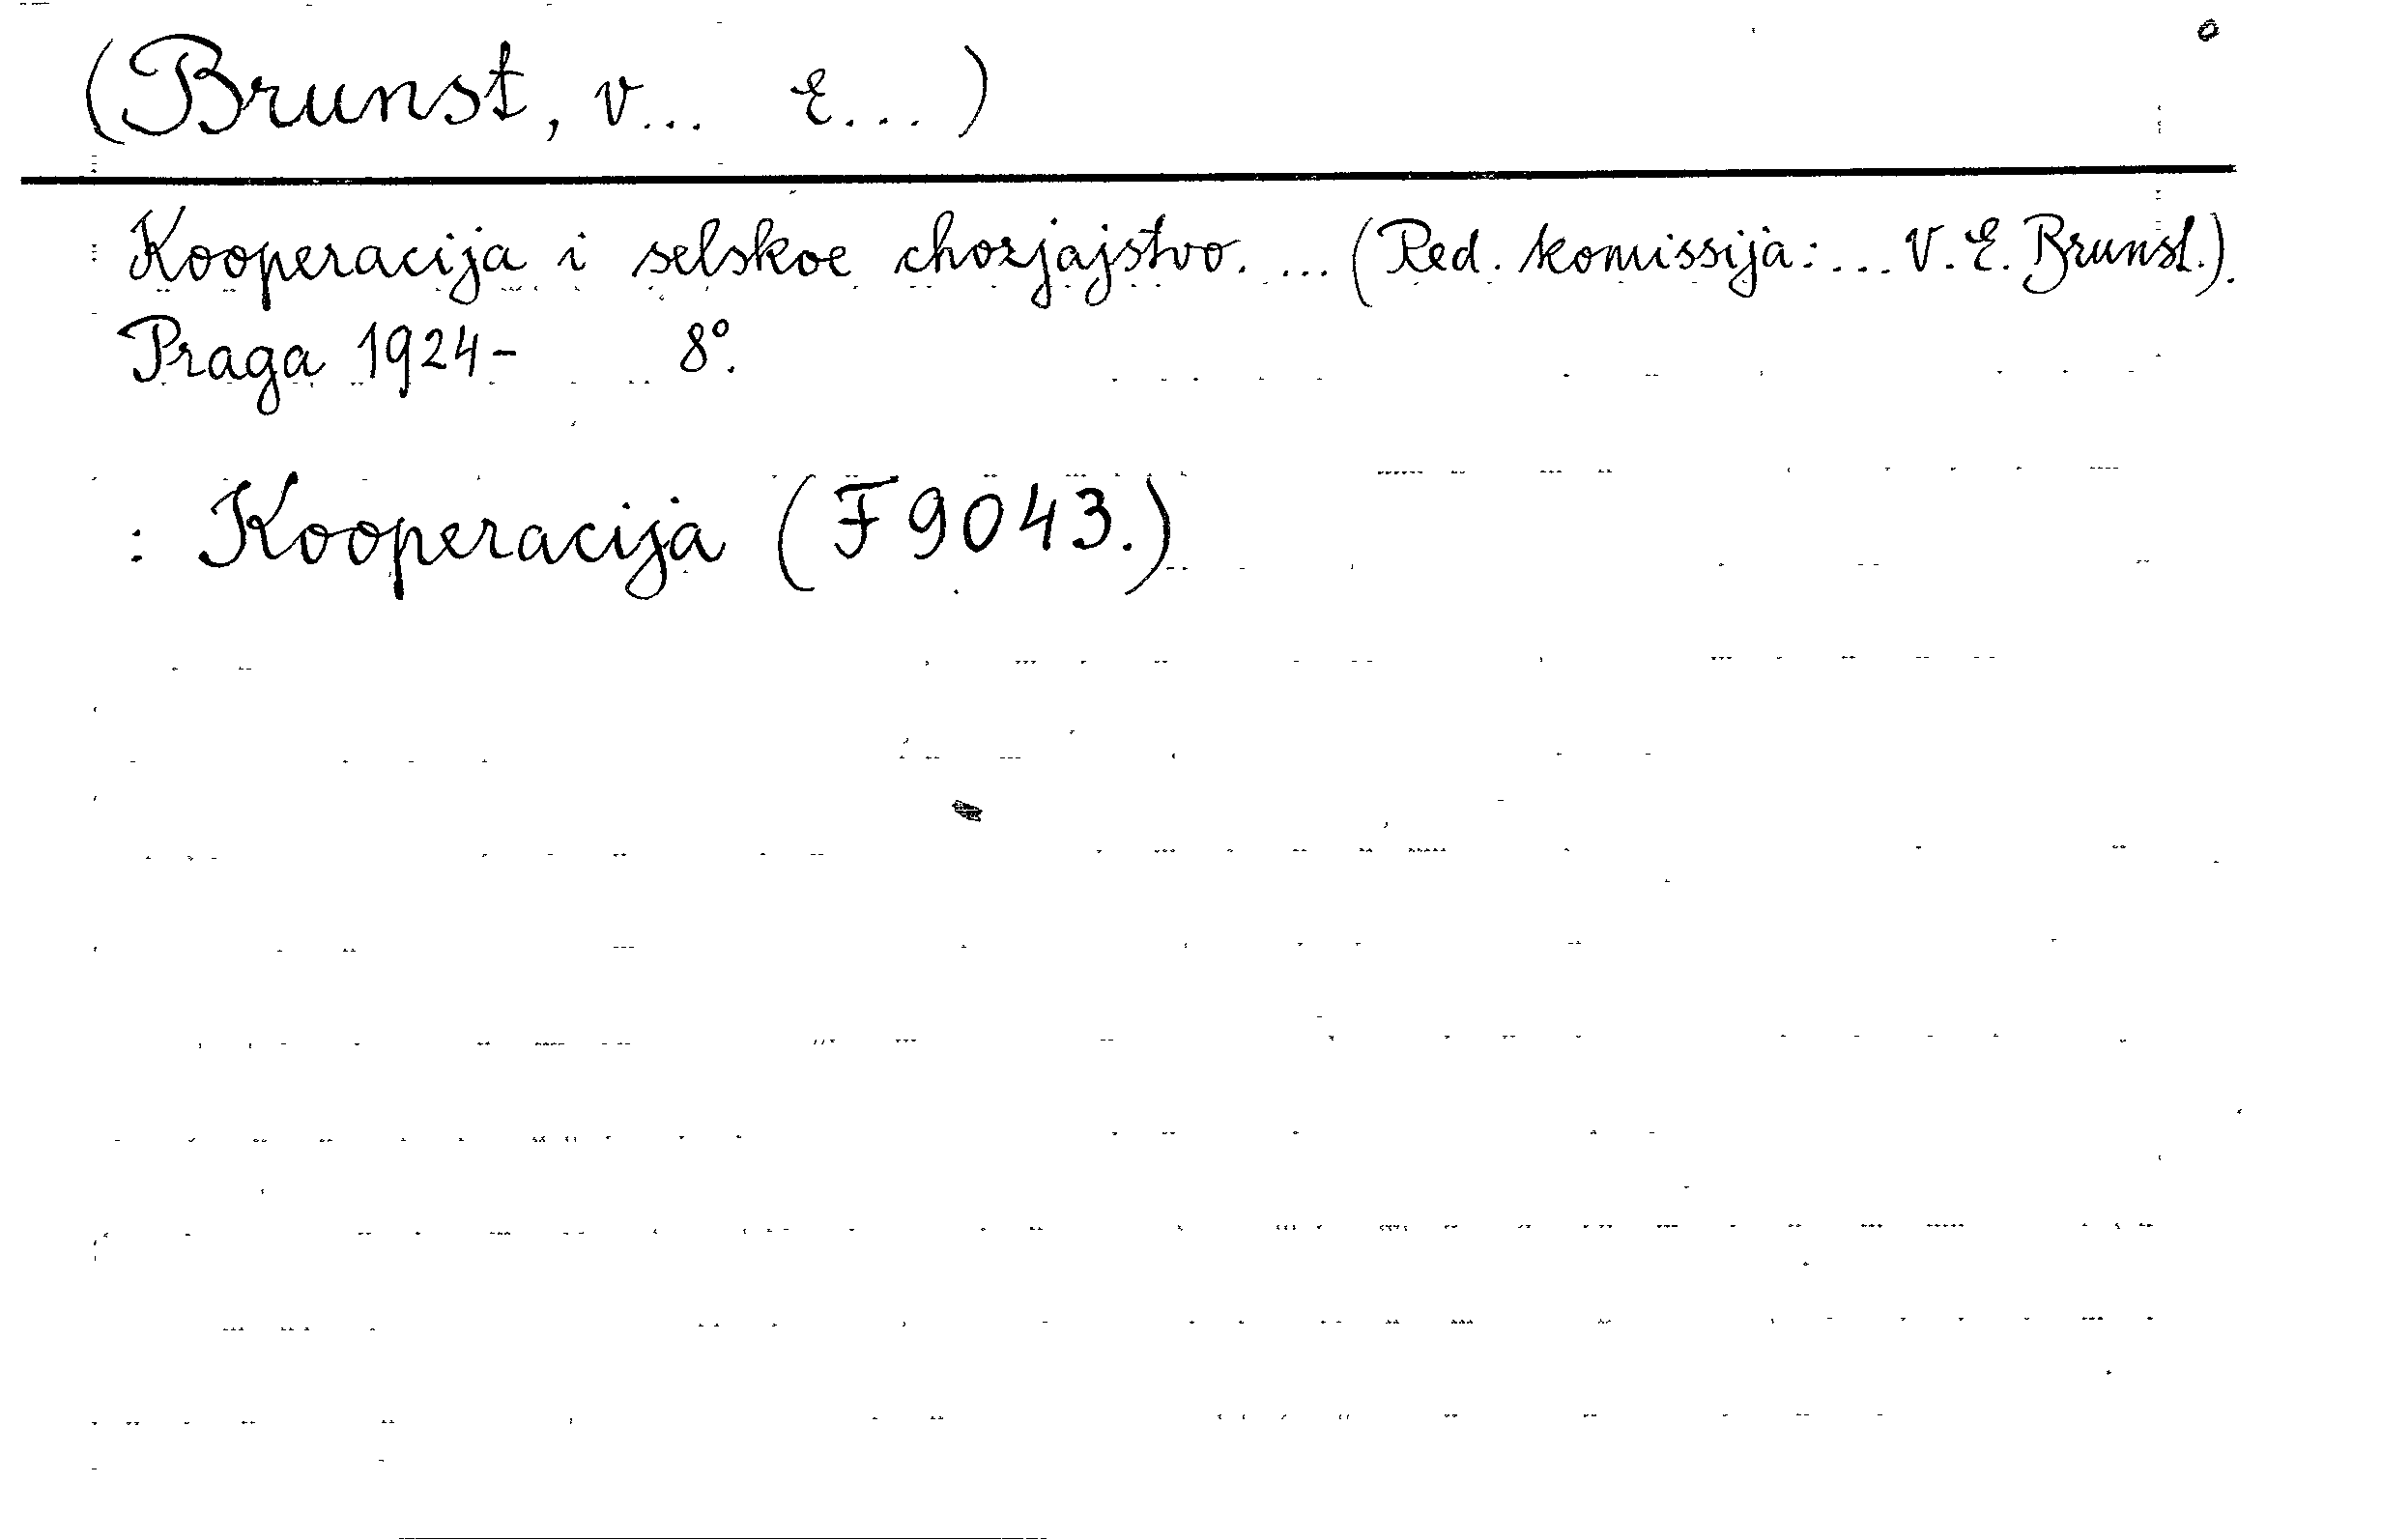 (Brunst, V... E...)
Kooperacija i selskoe chozjajstvo. ... (Red. komissija: ... V. E. Brunst.).
Praga 1924- 8°.
: Kooperacija (F 9043.)